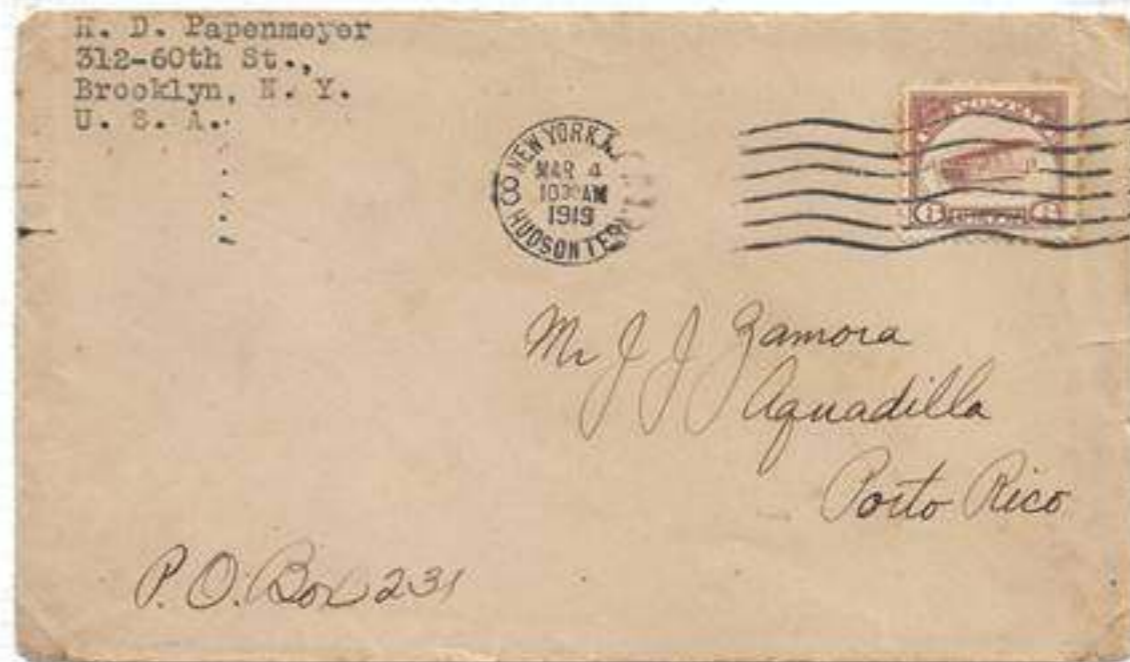 H. D. Papenmeyer
312-60th St.,
Brooklyn, N. Y.
U. S. A.
NEW YORK, N.
MAR 4
1030 AM
1919
8
HUDSON TER
U.S. POSTAGE
Mr J J Zamora
Aguadilla
Porto Rico
P.O. Box 231